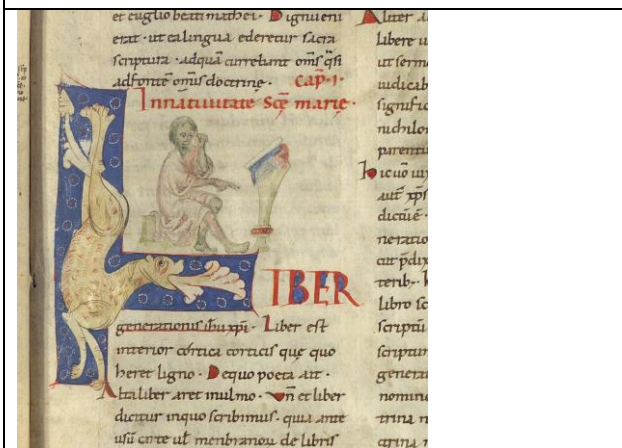 et euglio beati mathei · Dignu eni
erat · ut ea lingua ederetur sacra
scriptura · ad quā currebant om̄s q̄si
ad fontē om̄is doctrine · Cap̄ · I ·
In natiuitate Sc̄e marie ·
LIBER
generationis ih̄u xp̄i · Liber est
interior cortica corticis que quo
heret ligno · De quo poeta ait ·
Alta liber aret in ulmo · et liber
dicitur in quo scribimus · quia ante
usū carte ul menbranoȝ de libris
Aliter
libere
ut serm
iudicab
signific
nichilo
parent
aut xp̄s
dictiue
neratio
cur p̄dix
terib ·
libro sc
scriptū
scriptur
genera
nomine
trina